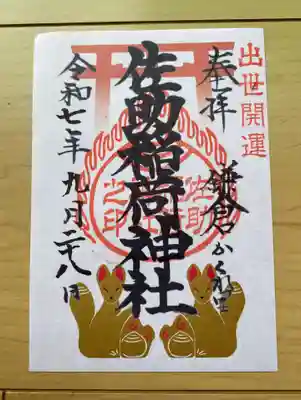 出世開運
奉拝
鎌倉かくれ里
佐助稲荷神社
佐助
之印
令和七年九月二十八日